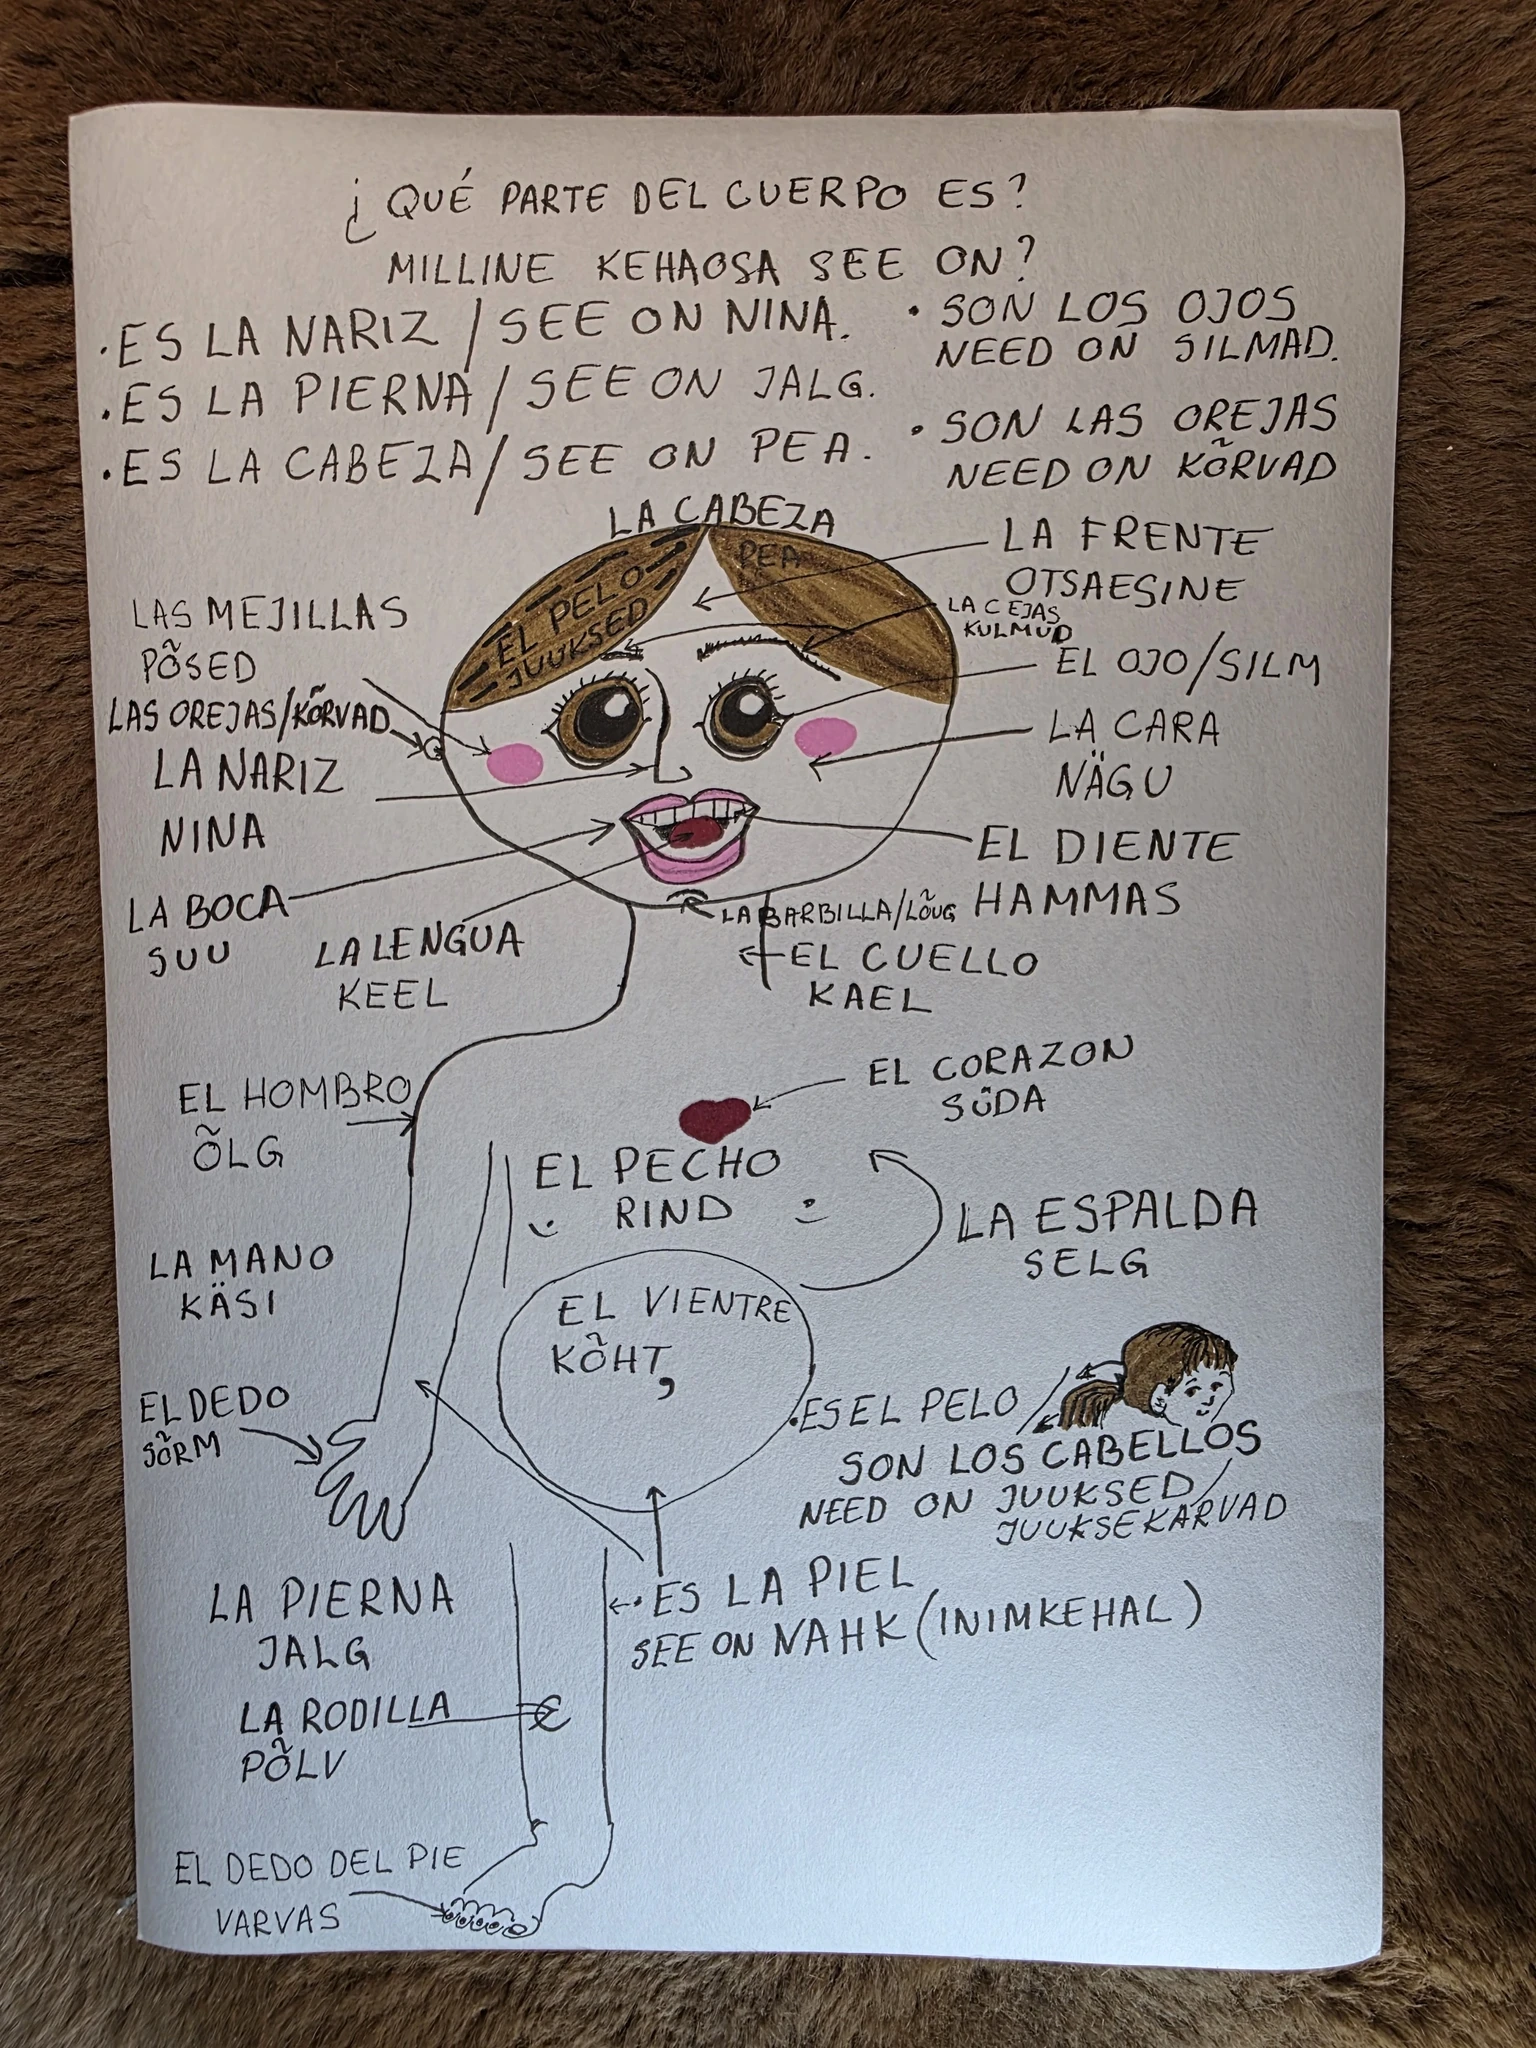 ¿QUÉ PARTE DEL CUERPO ES?
MILLINE KEHAOSA SEE ON?
·ES LA NARIZ / SEE ON NINA.
·ES LA PIERNA / SEE ON JALG.
·ES LA CABEZA / SEE ON PEA.
·SON LOS OJOS
NEED ON SILMAD.
·SON LAS OREJAS
NEED ON KÕRVAD
LA CABEZA
PEA
EL PELO
JUUKSED
LA FRENTE
OTSAESINE
LA CEJAS
KULMUD
LAS MEJILLAS
PÕSED
EL OJO/SILM
LAS OREJAS/KÕRVAD
LA CARA
NÄGU
LA NARIZ
NINA
EL DIENTE
HAMMAS
LA BOCA
SUU
LA LENGUA
KEEL
LA BARBILLA/LÕUG
EL CUELLO
KAEL
EL CORAZON
SÜDA
EL HOMBRO
ÕLG
EL PECHO
RIND
LA ESPALDA
SELG
LA MANO
KÄSI
EL VIENTRE
KÕHT
EL DEDO
SÕRM
·ES EL PELO
SON LOS CABELLOS
NEED ON JUUKSED/
JUUKSEKARVAD
·ES LA PIEL
SEE ON NAHK (INIMKEHAL)
LA PIERNA
JALG
LA RODILLA
PÕLV
EL DEDO DEL PIE
VARVAS